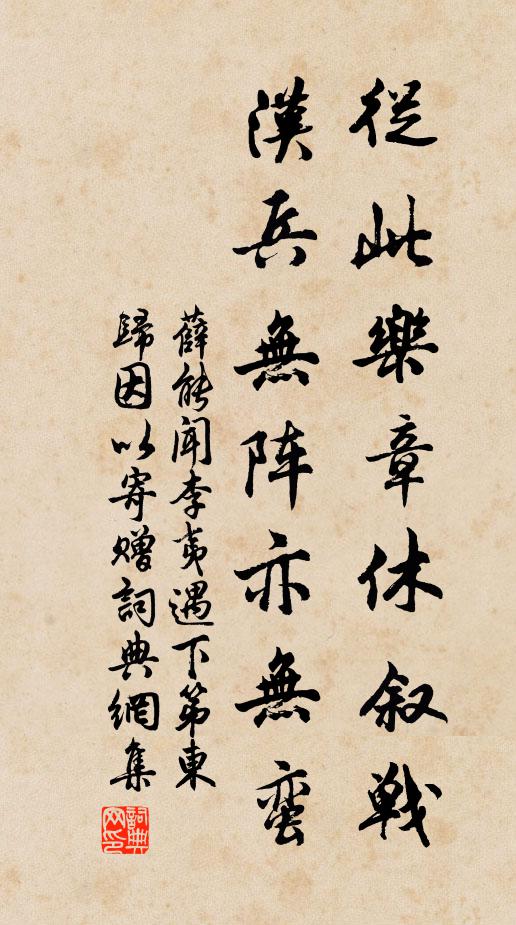 從此樂章休叙戰
漢兵無阵亦無蛮
薛能闻李夷遇下第東
歸因以寄贈詞典網集
詞典网印